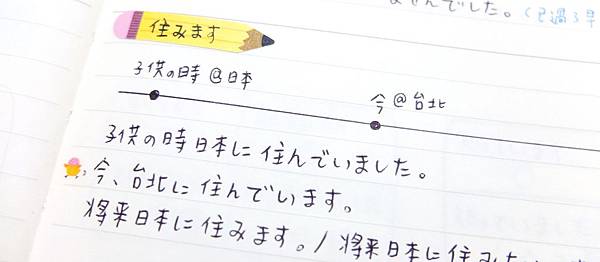 ませんでした。（已過
住みます
子供の時 @日本
今 @台北
子供の時日本に住んでいました。
今、台北に住んでいます。
将来日本に住みます。/ 将来日本に住みた